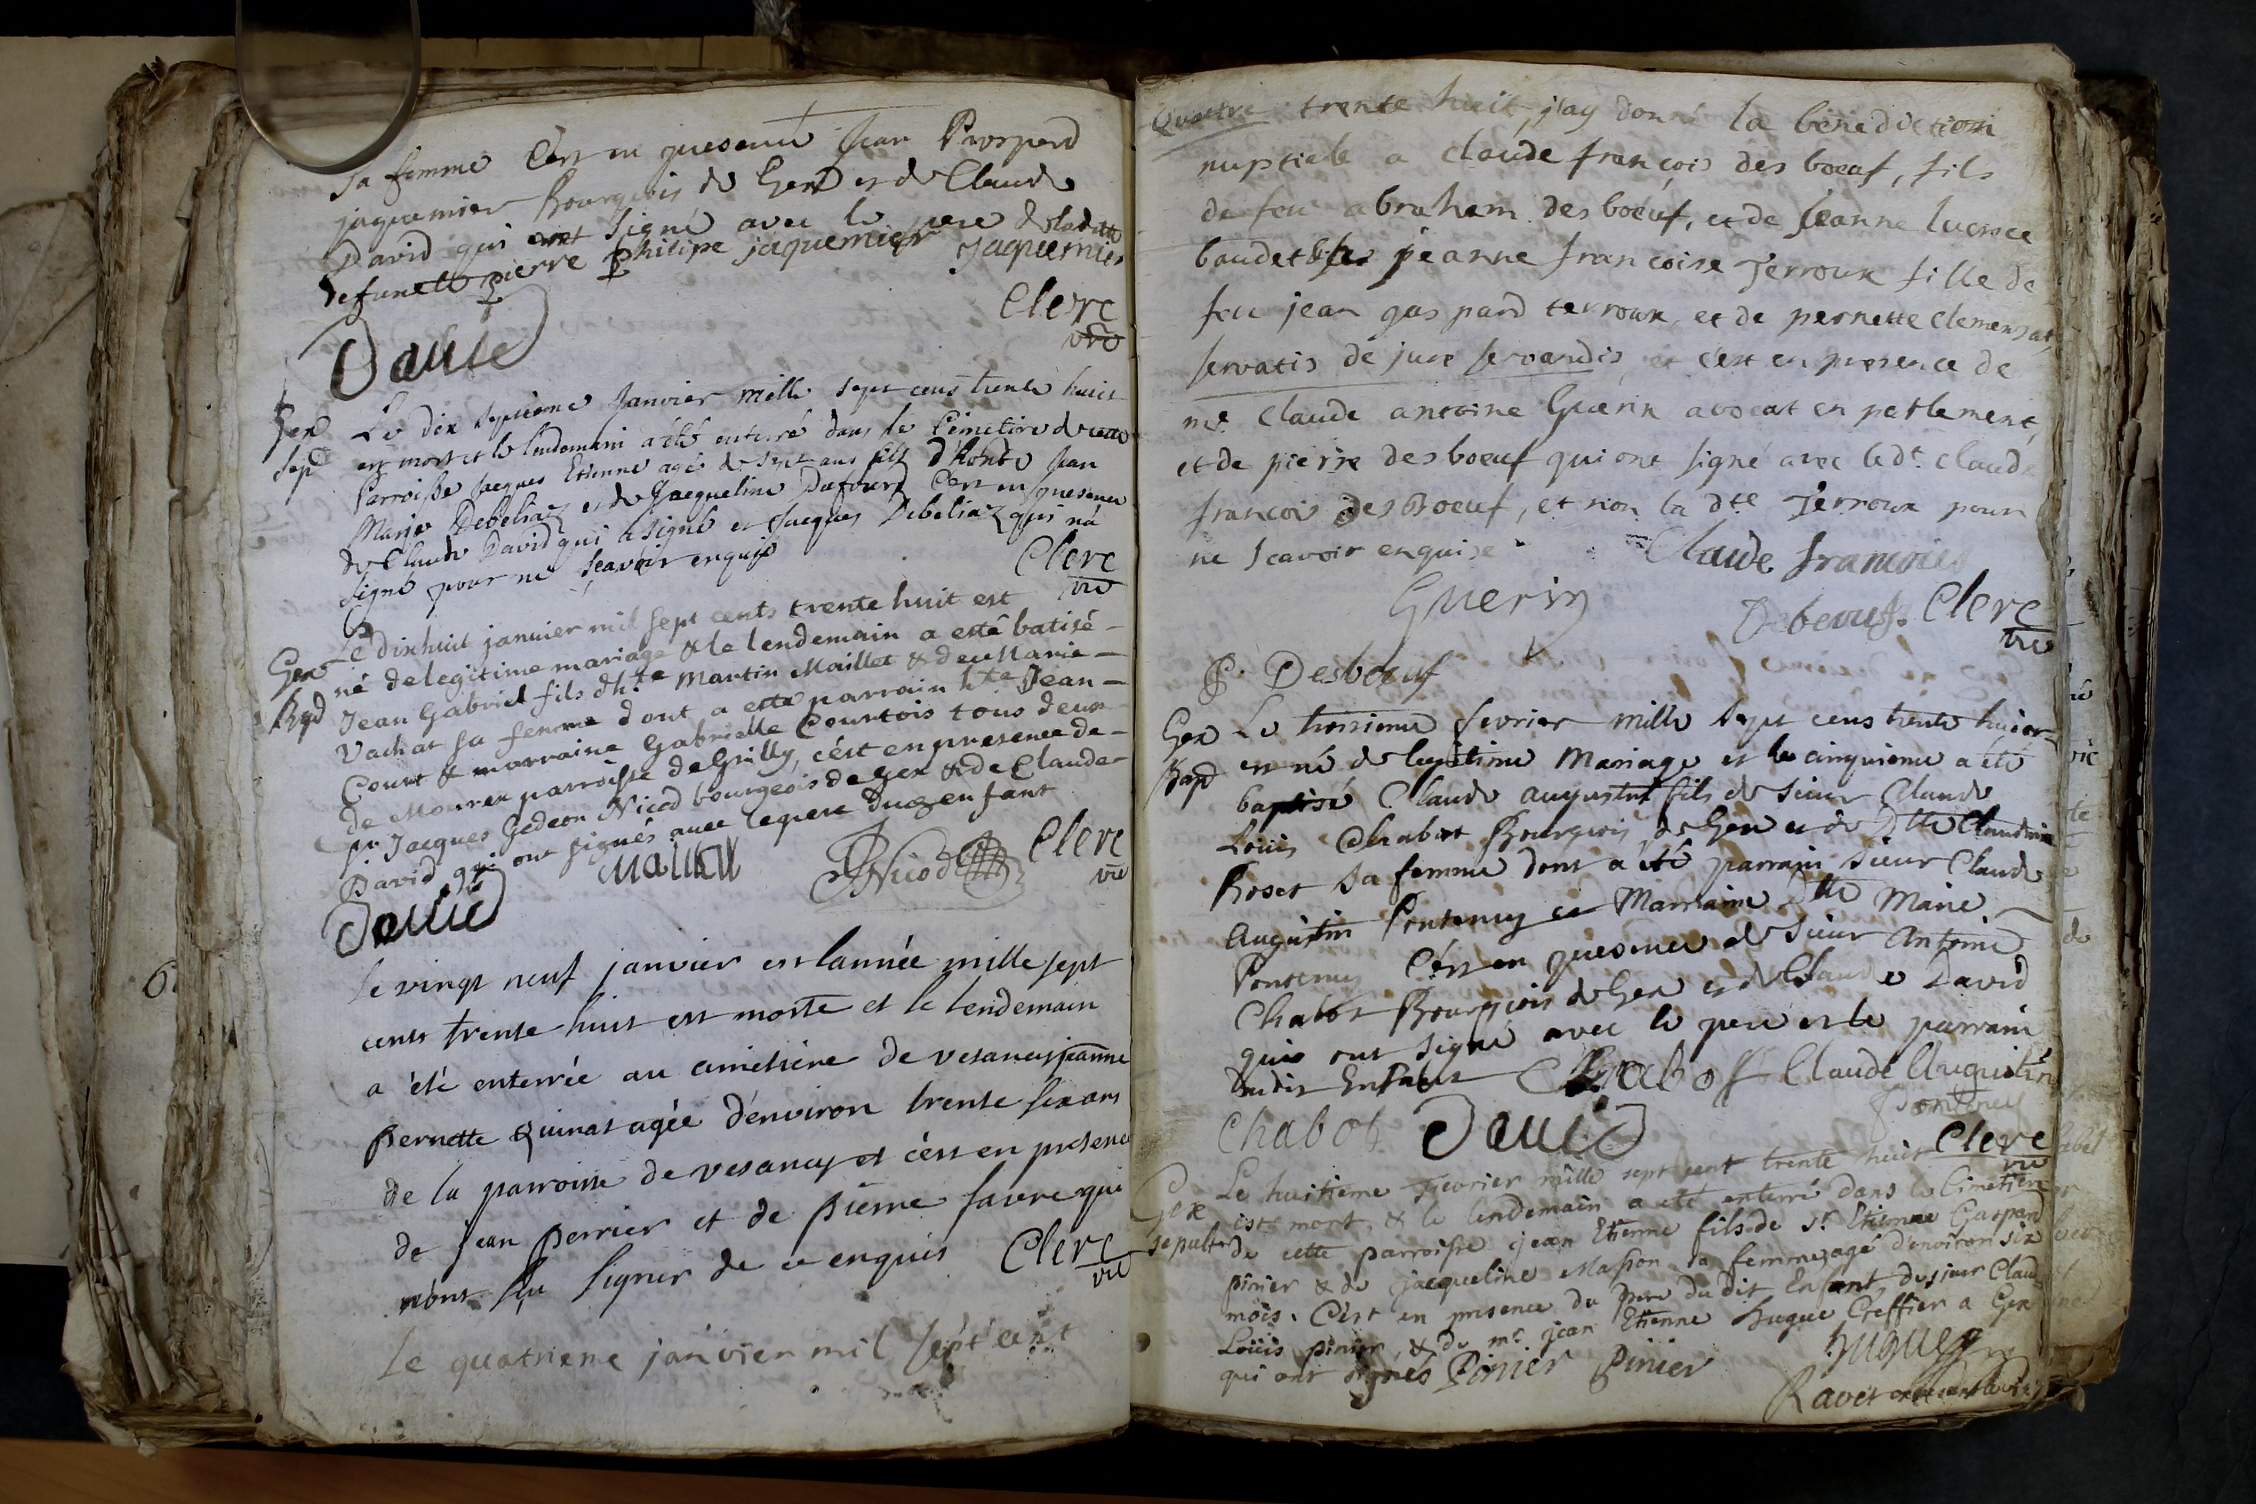 sa femme C'est en presence Jean Prosperd
jaquemier Bourgeois de Gex et de Claude
David qui ont signé avec le pere de ladite
defunctte pierre philipe jaquemier Jaquemier
Clerc
vic
David
Gex Le dix septieme Janvier mille sept cens trente huit
Sep est mort et le lendemain a été enterré dans le Cimetire de cette
Parroisse Jaques Etienne agé de sept ans fils d'honte Jan
Marie Debeliaz et de Jacqueline Dufour C'est en presence
de Claude David qui a signé et Jacques Debeliaz qui n'a
signé pour ne sçavoir enquis
Clerc
vic
Le dixhuit janvier mil sept cents trente huit est
Gex né de legitime mariage & le lendemain a esté batisé
Bapd Jean Gabriel fils d'h.te Martin Maillet & de Marie
Vachat sa femme dont a esté parrain h.te Jean
Court & marraine Gabrielle Courtois tous deux
de Mourex parroisse de Grilly, c'est en presence de
sr. Jacques Gedeon Nicod bourgeois de Gex & de Claude
David qui ont signés avec le pere duq enfant
Clerc
vic
Maillet JNicod
David
le vingt neuf janvier est lannée mille sept
cents trente huit est morte et le lendemain
a été enterrée au cimetiere de vesancy jeanne
Pernette quinat agée denviron trente six ans
de la parroisse de vesancy et c'est en presence
de jean perrier et de pierre favre qui
n'ont sçu signer de ce enquis Clerc
vic
Le quatrieme janvier mil sept cent
Quatre trente huit, j'ay donné la benediction
nuptiale a claude françois des boeuf, fils
de feu abraham des boeuf, et de jeanne lucrece
baudet & a jeanne francoise Terroux fille de
feu jean gaspard terroux et de pernette clemensat,
servatis de jure servandis et c'est en presence de
me. Claude antoine Guerin avocat en parlement,
et de pierre des boeuf qui ont signé avec led.t claude
francois des Boeuf, et non la d.te Terroux pour
ne scavoir enquise Claude francois
Guerin Debeuf. Clerc
vic
P. Desboeuf
Gex Le troisieme fevrier mille sept cens trente huict
Bapd est né de legitime Mariage et le cinquieme a été
baptisé Claude augustin fils de Sieur Claude
Loüis Chabot Bourgeois de Gex et de Dlle Claudine
Roset sa femme dont a été parrain sieur Claude
Augustin Ponteney et Marraine Dlle Marie
Ponteney C'est en presence de Sieur Antoine
Chabot Bourgeois de Gex et de Claude David
qui ont signé avec le pere et le parrain
dudit Enfant Chabot Claude Augustin
Ponteney
Chabot David
Clerc
vic
Gex Le huitieme fevrier mille sept cent trente huit
est mort & le lendemain a eté enterré dans le Cimetiere
sepulte de cette parroisse jean Etienne fils de Sr. Etienne Gaspard
pinier & de jacqueline Masson sa femme, agé d'environ six
mois. C'est en presence du pere du dit Enfant, du sieur Claude
Loüis pinier, & de mr. jean Etienne hugue Greffier a Gex
qui ont signés Pinier Pinier hugues
Ravet